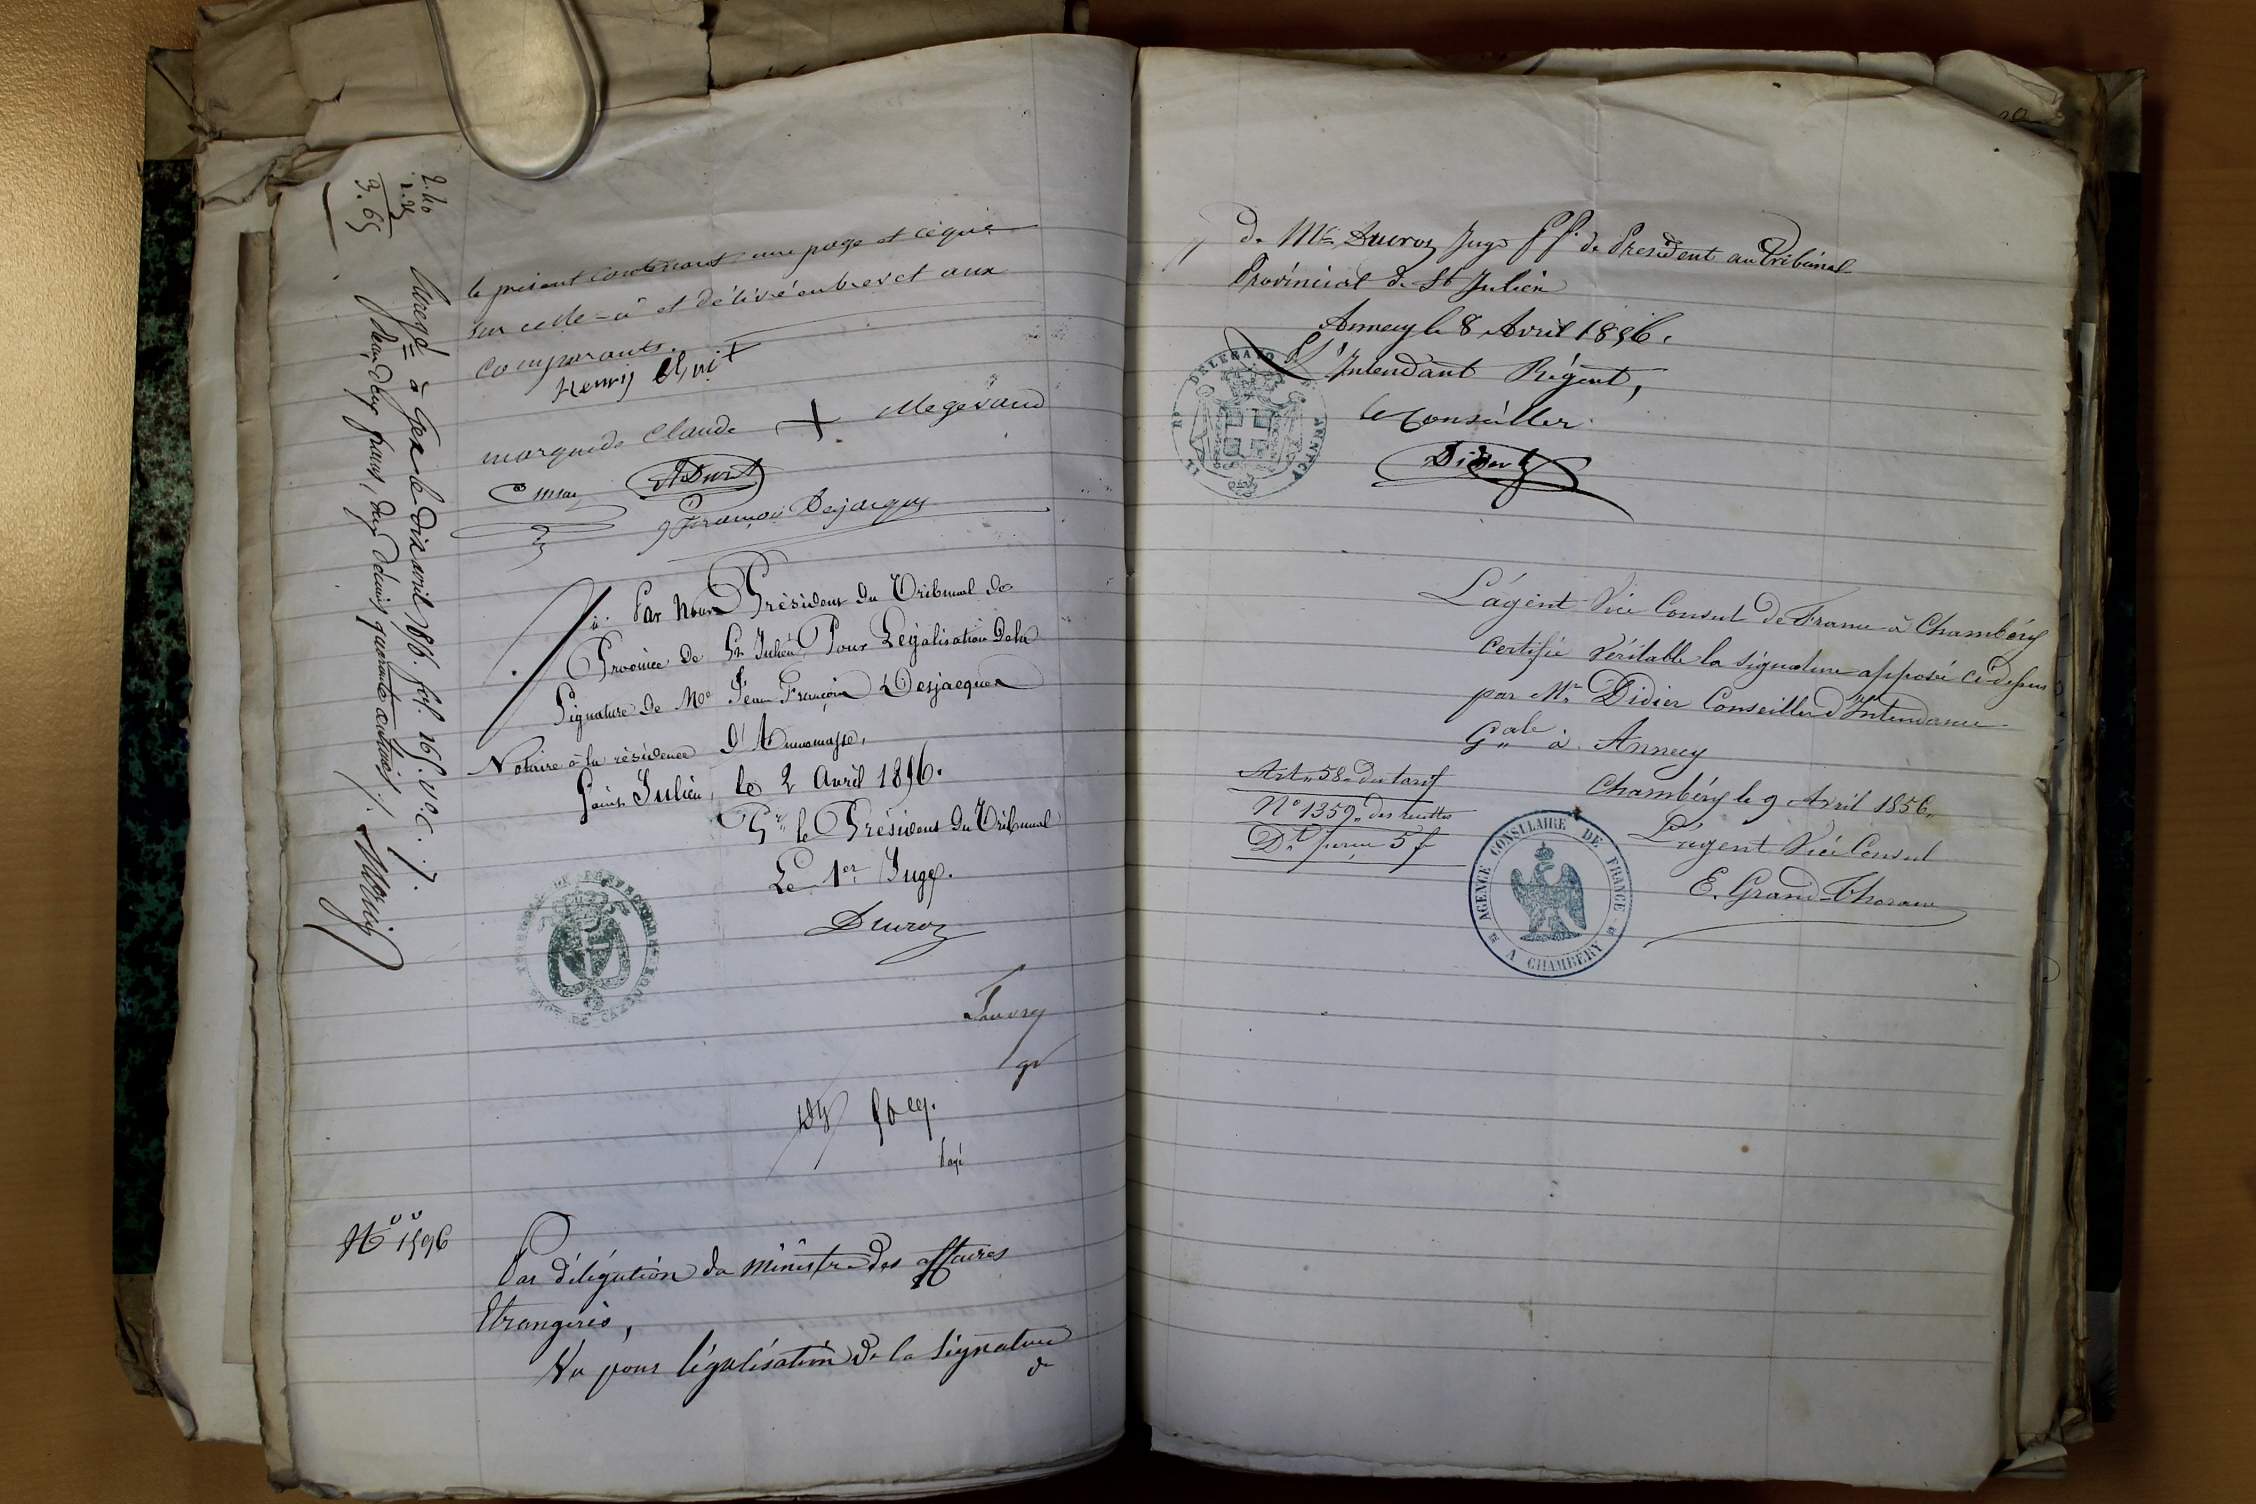 2.40
1.25
3.65
le présent contenant une page et ce qui
sur celle-ci et délivré en brevet aux
comparants.
Henry
marque de Claude + Megevand
François Desjacques
Par Nous Président du Tribunal de
Province de St Julien, Pour Légalisation De la
Signature de Me Jean François Desjacques
Notaire à la résidence D'Annemasse,
Saint Julien, le 2 Avril 1856.
Pr le Président Du Tribunal
Le 1er Juge.
Ducroz
payé
No 1596
Par délégation du Ministre des affaires
Etrangères,
Vu pour légalisation de la signature
de
Enregé à Gex le dix avril 1856. fol. 16
deux francs, dix
de Mr Ducroz Juge ff. de Président au Tribunal
Provincial de St Julien
Annecy le 8 Avril 1856.
L'Intendant Régent,
le Conseiller
Didier
L'agent Vice Consul de France à Chambéry
certifie véritable la signature apposée ci-dessus
par Mr Didier Conseiller d'Intendance
Gale à Annecy
Chambéry le 9 Avril 1856.
L'agent Vice Consul
E. Grand-Thorane
Art. 58 du tarif
No 1359 des recettes
Dt perçu 5 f
AGENCE CONSULAIRE DE FRANCE
A CHAMBÉRY